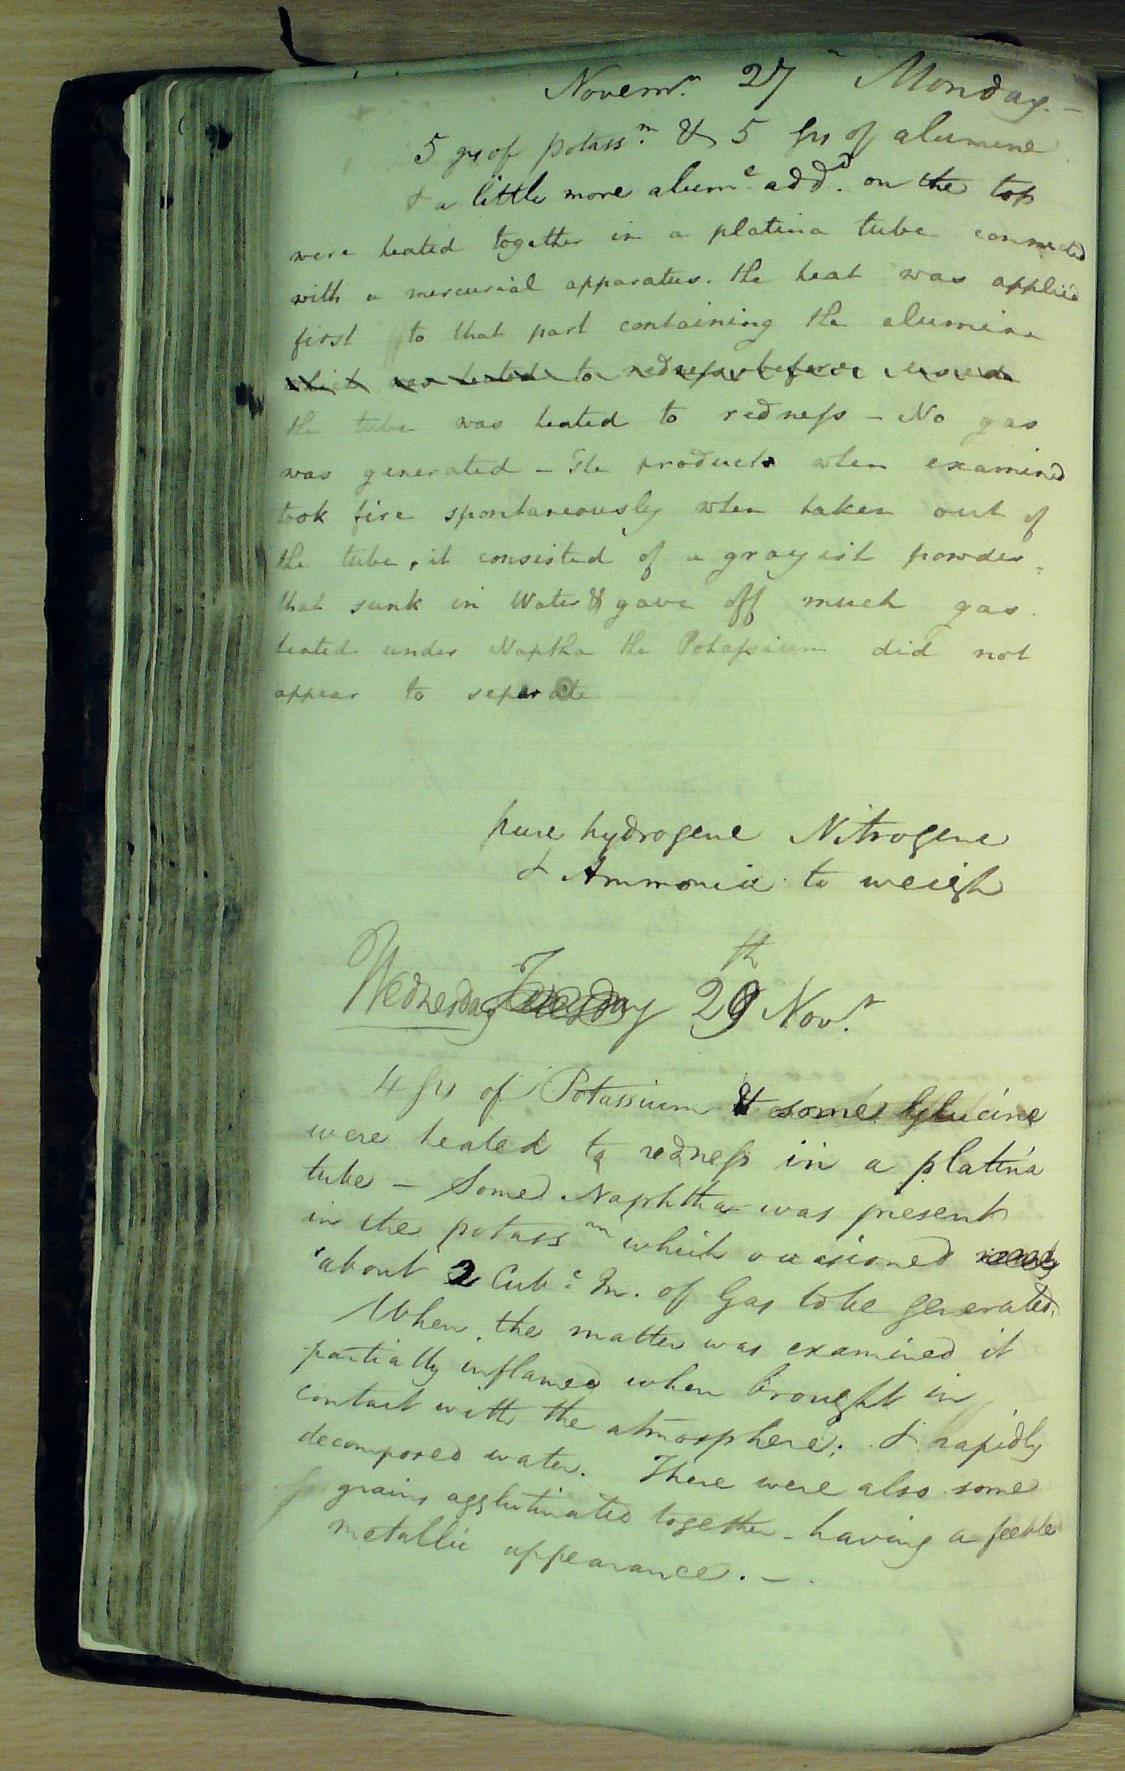 Novemr. 27 - Monday. -
5 grs of potassm. & 5 grs of alumine
& a little more alume. addd. on the top
were heated together in a platina tube connected
with a mercurial apparatus. the heat was applied
first to that part containing the alumine
which was heated to redness before
the tube was heated to redness - No gas
was generated - The products when examined
took fire spontaneously when taken out of
the tube, it consisted of a grayish powder
that sunk in Water & gave off much gas.
heated under Naptha the Potassium did not
appear to separate
pure hydrogene Nitrogene
& Ammonia to weigh
Wednesday Tuesday 29th Novr.
4 grs of Potassium & some Glucine
were heated to redness in a platina
tube - Some Naphtha was present
in the potassm which occasioned
about 2 Cubc. In. of Gas to be generated.
When the matter was examined it
partially inflamed when brought in
contact with the atmosphere; & rapidly
decomposed water. There were also some
grains agglutinated together - having a feeble
metallic appearance. -